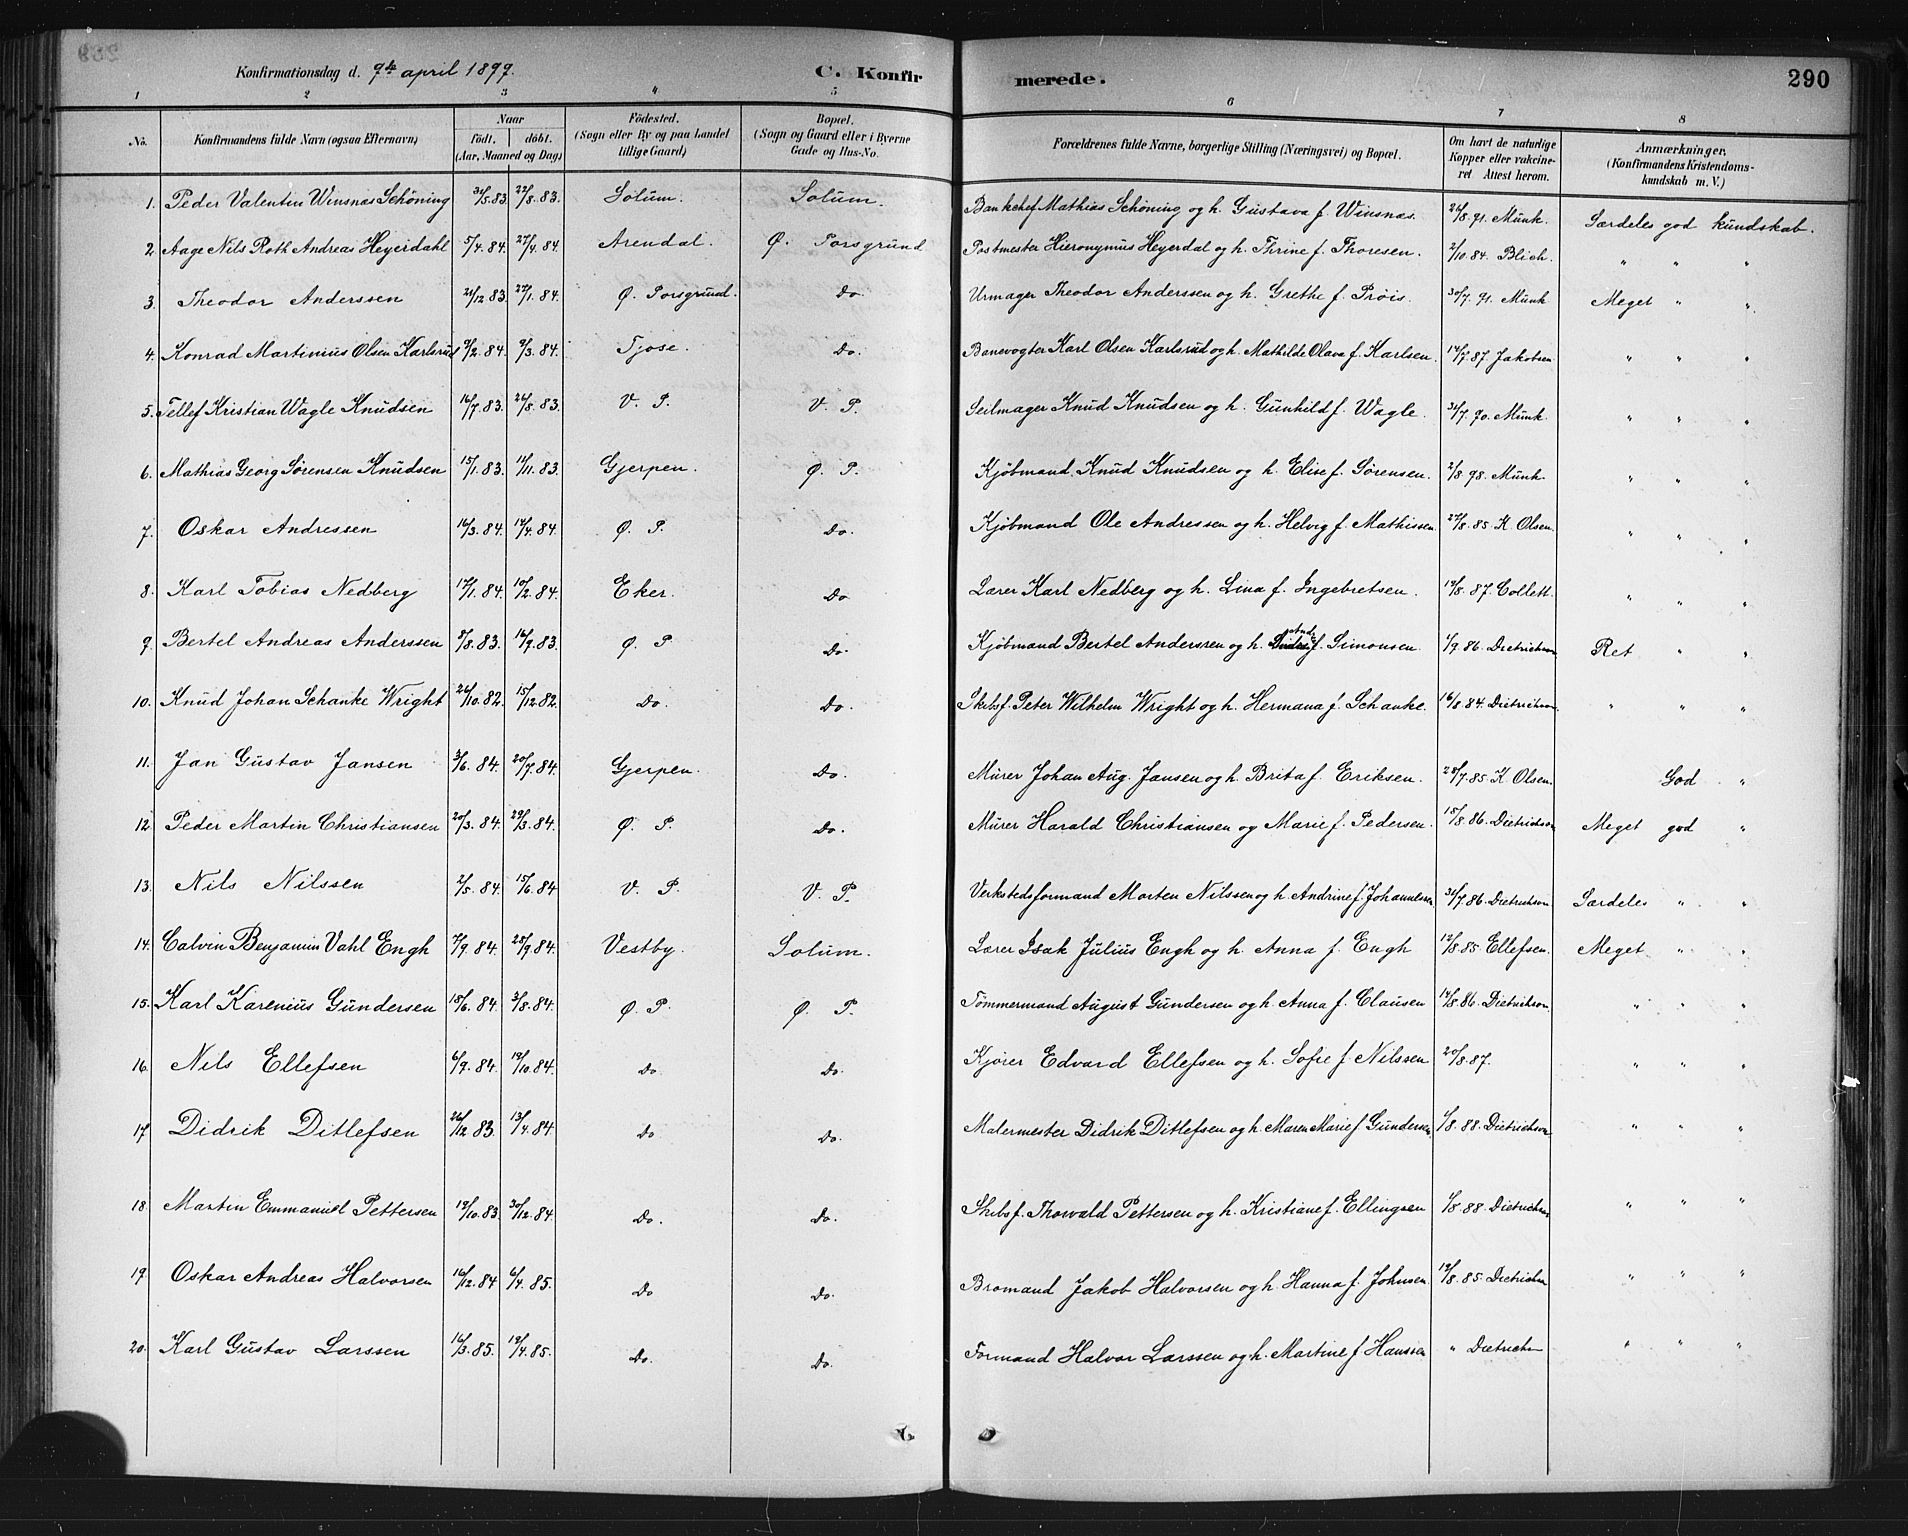 Konfirmationsdag d. 9de april 1899. C. Konfirmerede. 290
1 2 3 4 5 6 7 8
No. Konfirmandens fulde Navn (ogsaa Efternavn) Naar født, døbt. (Aar, Maaned og Dag) Fødested. (Sogn eller By og paa Landet tillige Gaard) Bopæl. (Sogn og Gaard eller i Byerne Gade og Hus-No. Forældrenes fulde Navne, borgerlige Stilling (Næringsvei) og Bopæl. Om havt de naturlige Kopper eller vakcineret Attest herom. Anmærkninger, (Konfirmandens Kristendomskundskab m. V.)
1. Peder Valentin Winsnæs Schöning 31/5 83. 22/8. 83. Solum. Solum. Bankchef Mathias Schöning og h. Gustava f. Winsnæs. 26/8. 91. Munk. Særdeles god kundskab.
2. Aage Nils Roth Andreas Heyerdahl 5/4. 84. 27/4. 84. Arendal. Ø. Porsgrund Postmester Hieronymus Heyerdal og h. Thrine f. Thoresen. 2/10. 84. Blich. " " "
3. Theodor Anderssen 21/12 83. 22/1. 84. Ø. Porsgrund. Do. Urmager Theodor Anderssen og h. Grethe f. Prøis. 30/7. 91. Munk Meget " "
4. Konrad Martinius Olsen Karlsrud 2/2. 84. 2/3. 84. Tjøse. Do. Banevogter Karl Olsen Karlsrud og h. Mathilde Olava f. Karlsen. 14/7. 87. Jakobsen " " "
5. Tellef Kristian Wagle Knudsen 16/7. 83. 26/8. 83. V. P. V. P. Seilmager Knud Knudsen og h. Gunhild f. Wagle. 31/7. 90. Munk. " " "
6. Mathias Georg Sørensen Knudsen 15/1. 83. 11/11. 83. Gjerpen. Ø. P. Kjøbmand Knud Knudsen og h. Elise f. Sørensen. 2/8. 98. Munk. " " "
7. Oskar Andressen 16/3. 84. 14/4. 84 Ø. P. Do. Kjøbmand Ole Andressen og h. Helvig f. Mathissen 27/8. 85. K Olsen. " " "
8. Karl Tobias Nedberg 17/1. 84. 10/2. 84. Eker. Do Lærer Karl Nedberg og h. Lina f. Ingebretsen. 19/8. 87. Collett. " " "
9. Bertel Andreas Anderssen 5/8. 83. 16/9. 83. Ø. P Do. Kjøbmand Bertel Anderssen og h. f. Simonsen. 1/9. 86. Dietrichson Ret " "
10. Knud Johan Schanke Wright 26/10. 82. 15/12. 82. Do. Do. Skibsf. Peter Wilhelm Wright og h. Hermana f. Schanke. 16/8. 84. Dietrichson. " " "
11. Jan Gustav Jansen 3/6. 84. 20/7. 84. Gjerpen. Do. Murer Johan Aug. Jansen og h. Brita f. Eriksen. 28/7. 85. K. Olsen. God "
12. Peder Martin Christiansen 20/3. 84. 29/3. 84. Ø. P. Do. Murer Harald Christiansen og Marie f. Pedersen. 15/8. 86. Dietrichson Meget god "
13. Nils Nilssen 2/5. 84. 15/6. 84 V. P. V. P. Verkstedsformand Morten Nilssen og h. Andrine f. Johannesen 31/7. 86. Dietrichson Særdeles " "
14. Calvin Benjamin Vahl Engh 7/9. 84. 28/9. 84. Vestby. Solum. Lærer Isak Julius Engh og h. Anna f. Engh 12/8. 85. Ellefsen. Meget " "
15. Karl Karenius Gundersen 15/6. 84. 3/8. 84. Ø. P. Ø. P. Tømmermand August Gundersen og h. Anna f. Clausen 14/8. 86. Dietrichson. " " "
16. Nils Ellefsen 6/9. 84. 19/10. 84. Do Do. Kjører Edvard Ellefsen og h. Sofie f. Nilssen 20/8. 87. " " "
17. Didrik Ditlefsen 26/12 83. 13/4. 84. Do Do. Malermester Didrik Ditlefsen og h. Maren Marie f. Gundersen. 1/8. 88. Dietrichson " " "
18. Martin Emmanuel Pettersen 19/10. 83. 30/12. 84. Do. Do. Skibsf. Thorvald Pettersen og h. Kristiane f. Ellingsen 1/8. 88. Dietrichson " " "
19. Oskar Andreas Halvorsen 16/12. 84 6/4. 85. Do Do. Bromand Jakob Halvorsen og h. Hanna f. Johnsen. 19/8. 85. Dietrichson " " "
20. Karl Gustav Larssen 16/3. 85. 19/4. 85. Do. Do. Formand Halvor Larssen og h. Martine f. Hanssen " Dietrichson " " "